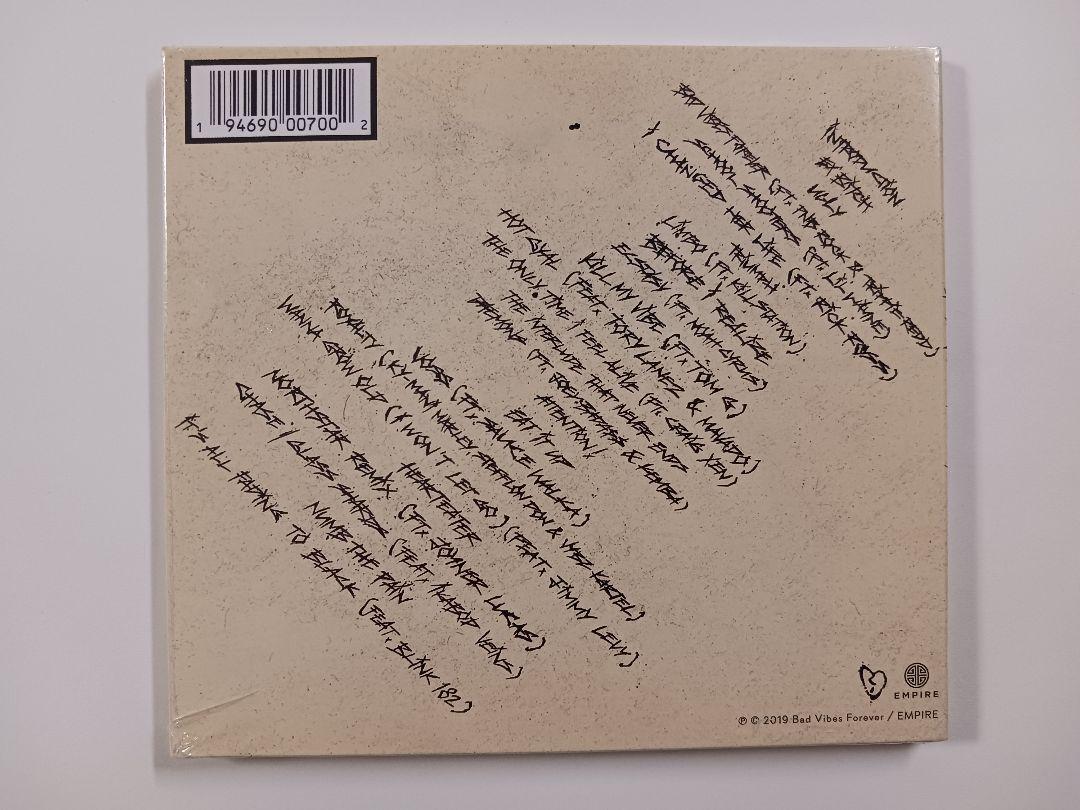 1 94690 00700 2
INTRODUCTION
EX BITCH
UGLY
BAD VIBES FOREVER (FT. PNB ROCK & TRIPPIE REDD)
SCHOOL SHOOTERS (FT. LIL WAYNE)
I CHANGED HER LIFE (FT. RICK ROSS)
TRIUMPH
LIMBO (FT. KILLSTATION)
BEFORE I REALIZE
ECSTASY (FT. NOAH CYRUS)
KILL MY VIBE (FT. TOM G)
HOT GYAL (FEAT. TORY LANEZ & MAVADO)
THE ONLY TIME I FEEL ALIVE (FT. CRAIG XEN)
THE INTERLUDE THAT NEVER ENDS
DAEMONS (FT. JOEY BADA$$ & KEMBA)
ATTENTION!
EAT IT UP
VOSS (FT. SAUCE WALKA)
ROYALTY (KY-MANI MARLEY, STEFFLON DON & VYBZ KARTEL)
WANNA GROW OLD (I WON'T LET GO) (FEAT. JIMMY LEVY)
HEARTEATER
NORTHSTAR REMIX (FT. JOYNER LUCAS)
CHASE / GLASS SHARDS (FEAT. IKABOD VEINS)
NUMB THE PAIN
IT'S ALL FADING TO BLACK (FEAT. BLINK 182)
EMPIRE
℗ © 2019 Bad Vibes Forever / EMPIRE